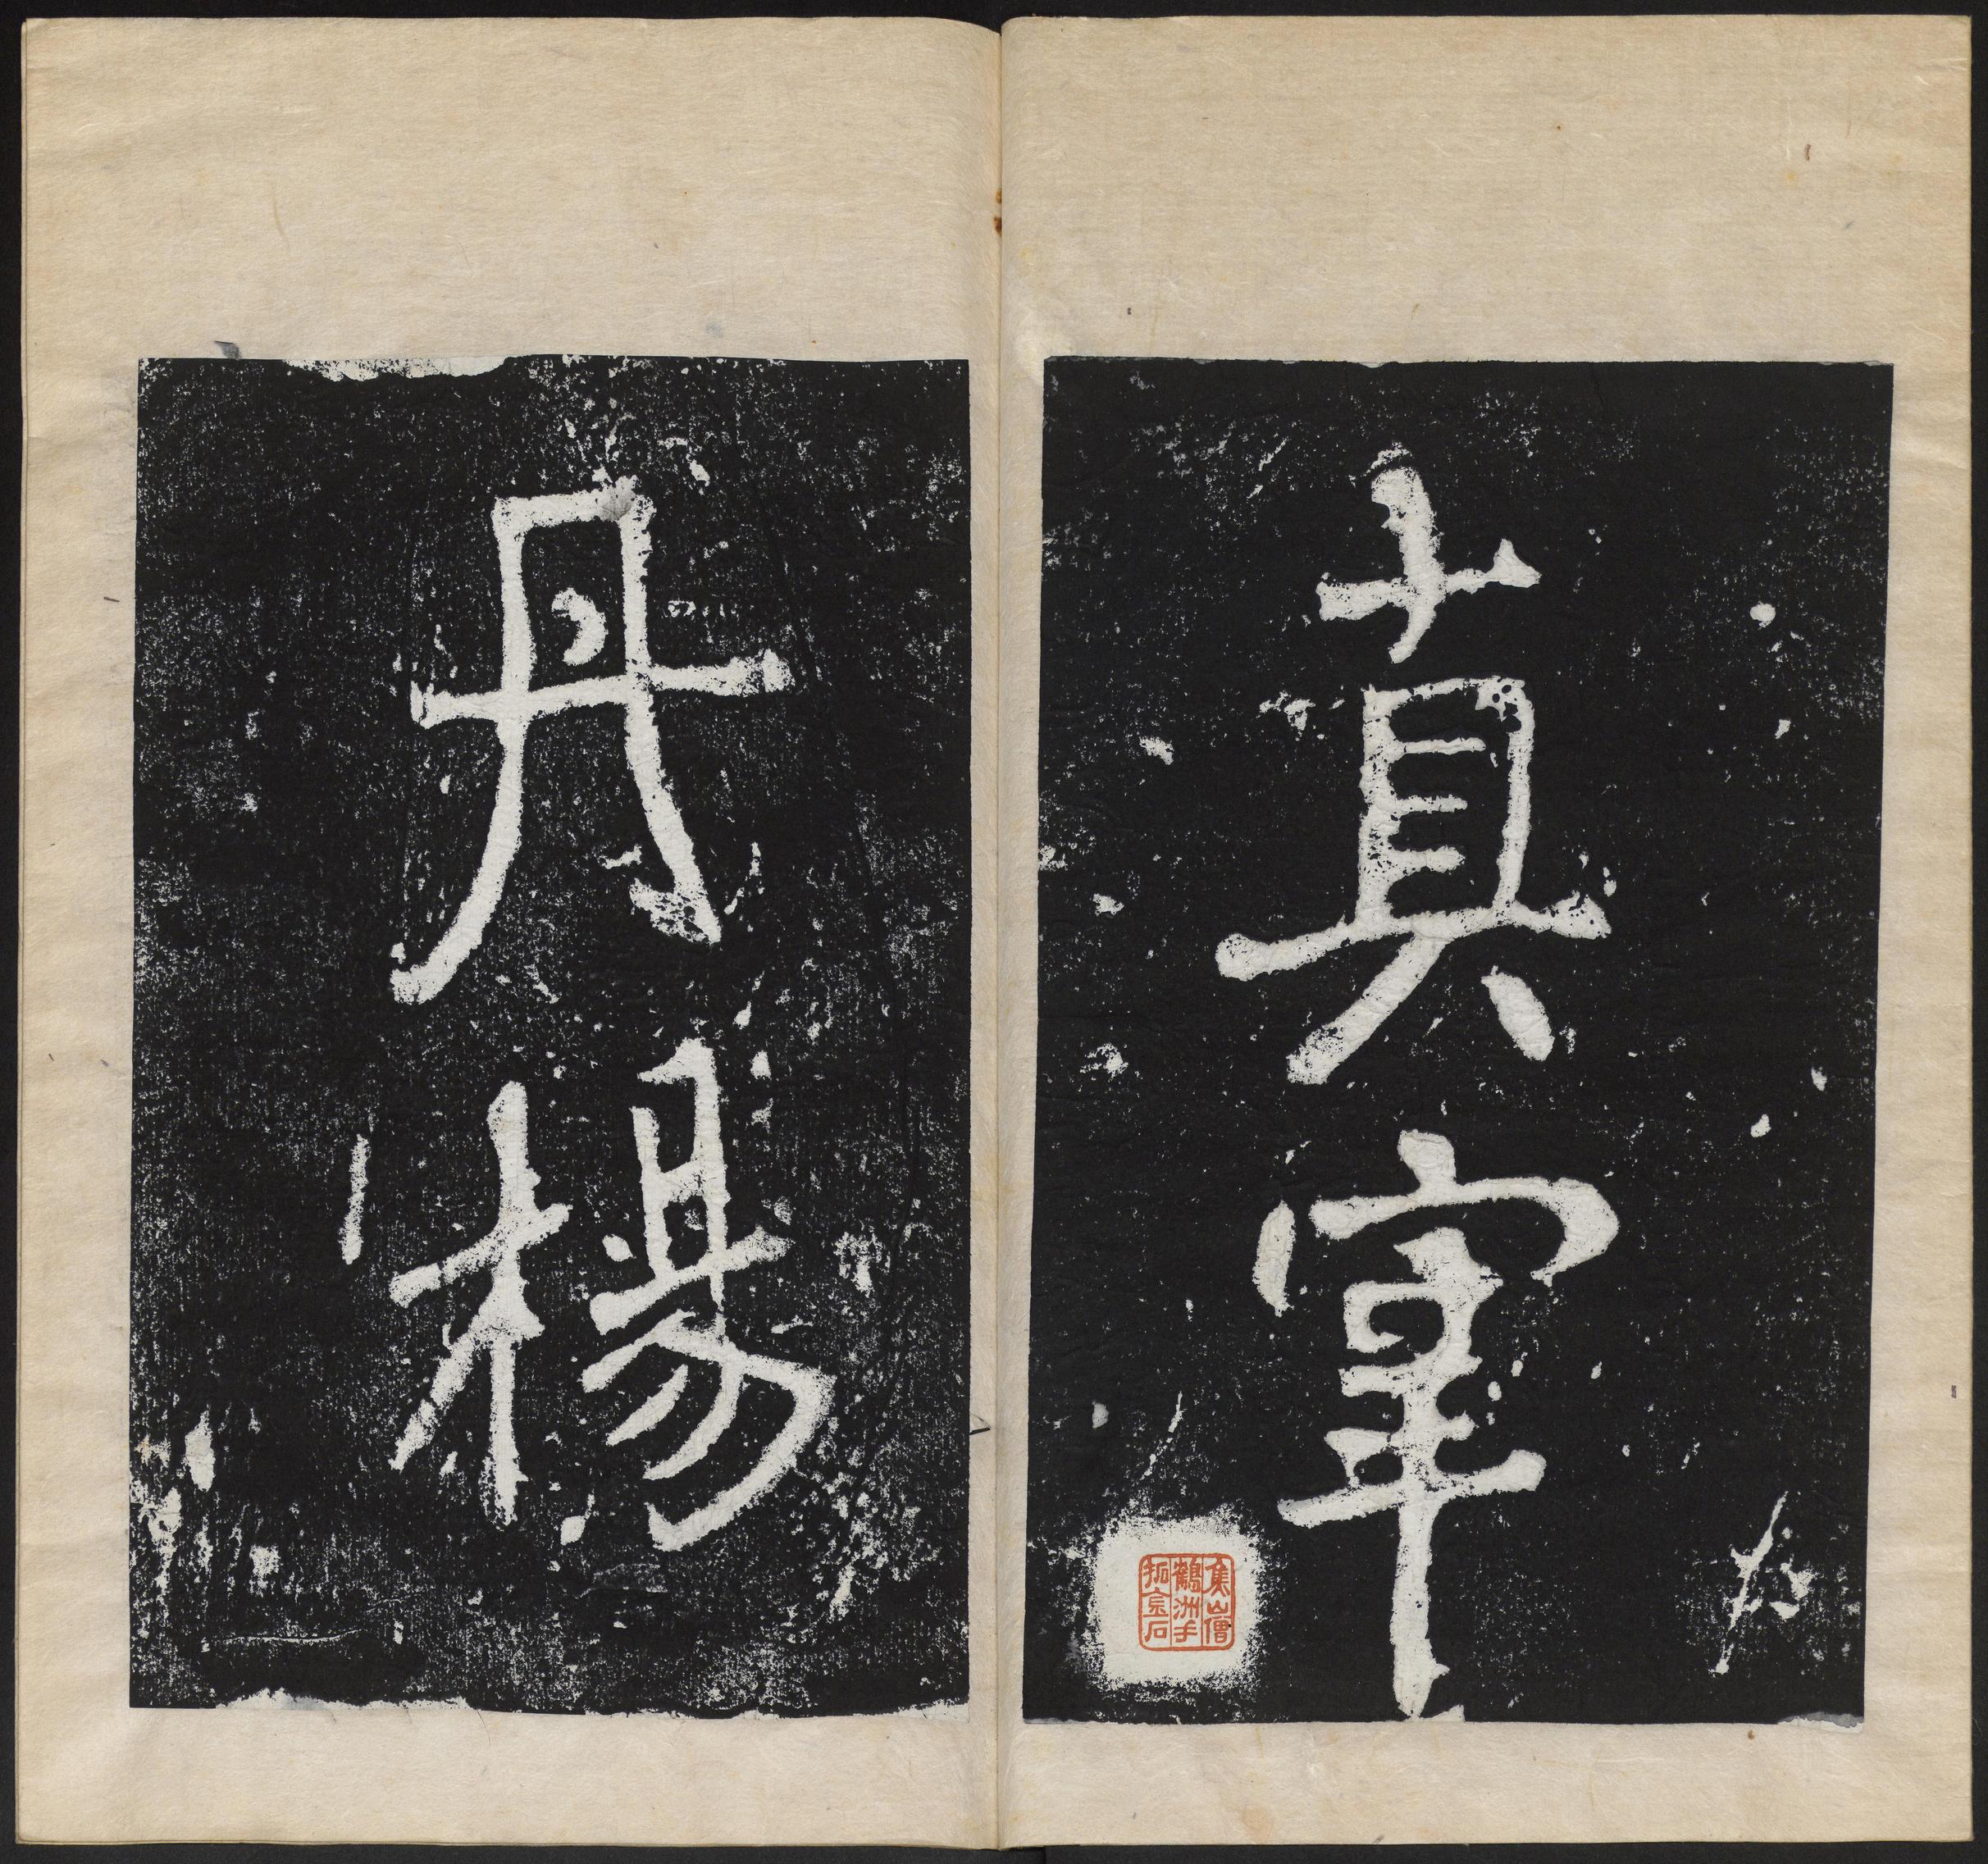 真宰
丹楊
焦山僧
鶴洲手
拓石